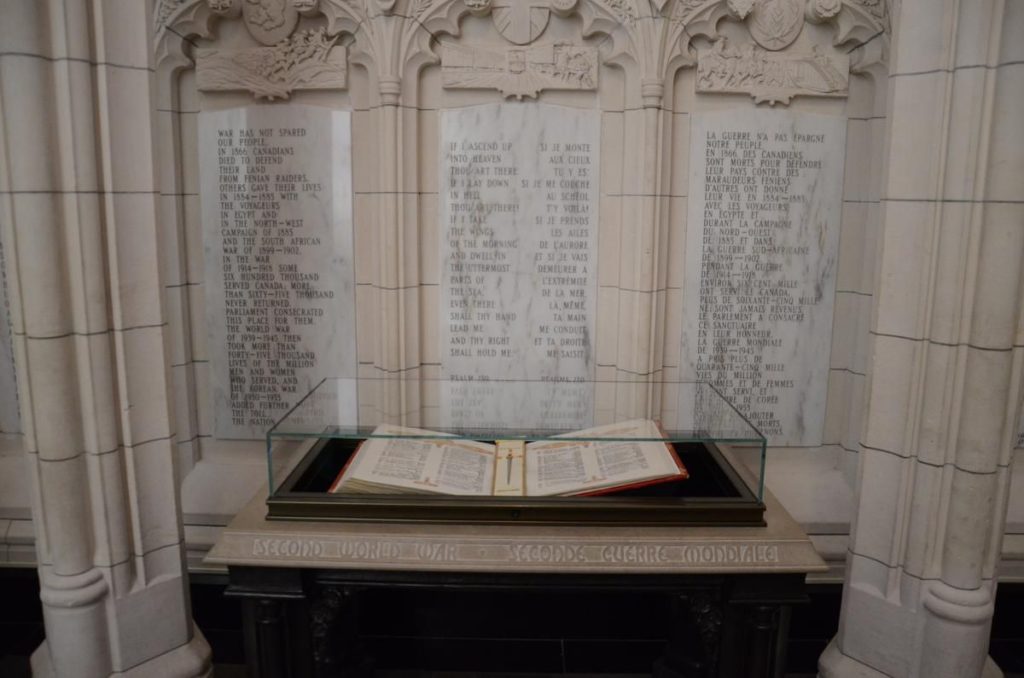 WAR HAS NOT SPARED
OUR PEOPLE.
IN 1866 CANADIANS
DIED TO DEFEND
THEIR LAND
FROM FENIAN RAIDERS.
OTHERS GAVE THEIR LIVES
IN 1884-1885 WITH
THE VOYAGEURS
IN EGYPT AND
IN THE NORTH-WEST
CAMPAIGN OF 1885
AND THE SOUTH AFRICAN
WAR OF 1899-1902.
IN THE WAR
OF 1914-1918 SOME
SIX HUNDRED THOUSAND
SERVED CANADA. MORE
THAN SIXTY-FIVE THOUSAND
NEVER RETURNED.
PARLIAMENT CONSECRATED
THIS PLACE FOR THEM.
THE WORLD WAR
OF 1939-1945 THEN
TOOK MORE THAN
FORTY-FIVE THOUSAND
LIVES OF THE MILLION
MEN AND WOMEN
WHO SERVED, AND
THE KOREAN WAR
OF 1950-1953
ADDED FURTHER
THE TOLL.
THE NATION
IF I ASCEND UP
INTO HEAVEN
THOU ART THERE
IF I LAY DOWN
IN HELL
THOU ART THERE!
IF I TAKE
THE WINGS
OF THE MORNING
AND DWELL IN
THE UTTERMOST
PARTS OF
THE SEA,
EVEN THERE
SHALL THY HAND
LEAD ME
AND THY RIGHT
SHALL HOLD ME.
PSALM 139
SI JE MONTE
AUX CIEUX
TU Y ES:
SI JE ME COUCHE
AU SCHÉOL
T'Y VOILÀ!
SI JE PRENDS
LES AILES
DE L'AURORE
ET SI JE VAIS
DEMEURER À
L'EXTRÉMITÉ
DE LA MER,
LÀ MÊME,
TA MAIN
ME CONDUIT
ET TA DROITE
ME SAISIT.
LA GUERRE N'A PAS ÉPARGNÉ
NOTRE PEUPLE.
EN 1866, DES CANADIENS
SONT MORTS POUR DÉFENDRE
LEUR PAYS CONTRE DES
MARAUDEURS FENIENS.
D'AUTRES ONT DONNÉ
LEUR VIE EN 1884-1885,
AVEC LES VOYAGEURS
EN ÉGYPTE ET
DURANT LA CAMPAGNE
DU NORD-OUEST
DE 1885 ET DANS
LA GUERRE SUD-AFRICAINE
DE 1899-1902.
PENDANT LA GUERRE
DE 1914-1918
ENVIRON SIX CENT MILLE
ONT SERVI LE CANADA,
PLUS DE SOIXANTE-CINQ MILLE
NE SONT JAMAIS REVENUS.
LE PARLEMENT A CONSACRÉ
CE SANCTUAIRE
EN LEUR HONNEUR.
LA GUERRE MONDIALE
DE 1939-1945
A PRIS PLUS DE
QUARANTE-CINQ MILLE
VIES DU MILLION
D'HOMMES ET DE FEMMES
SERVI, ET
DE CORÉE
1953
AJOUTER
MORTS.
SECOND WORLD WAR · SECONDE GUERRE MONDIALE